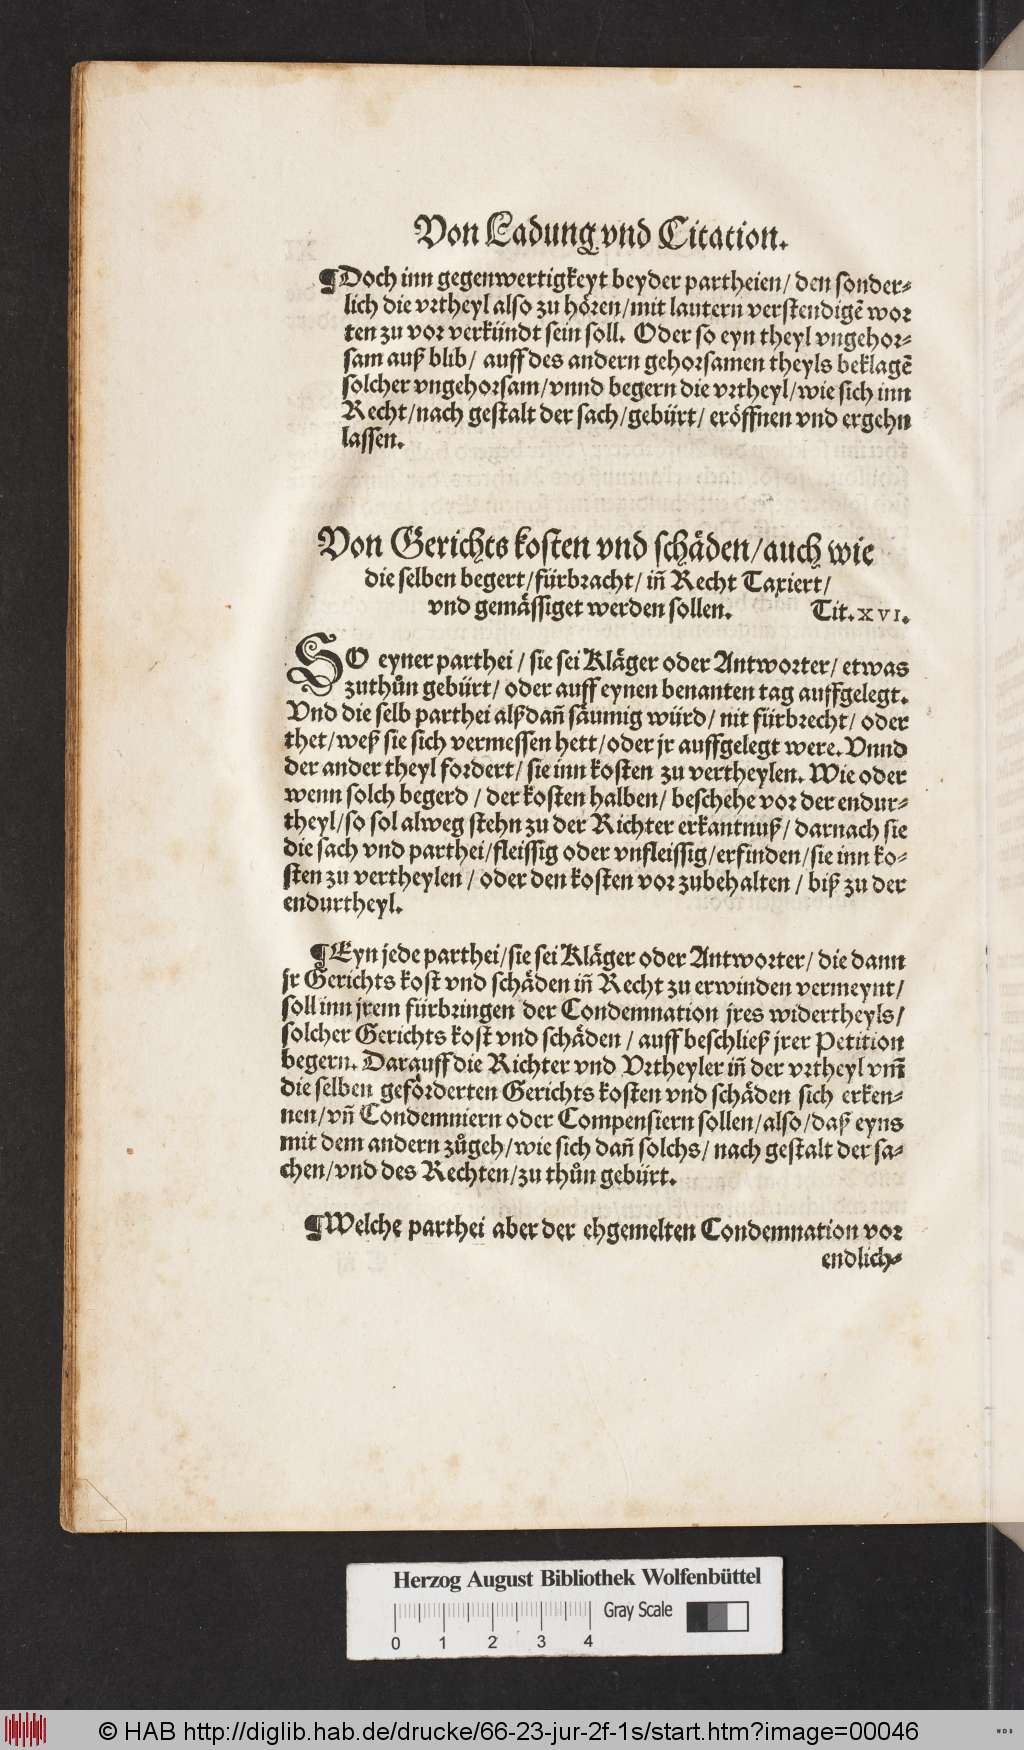 Von Ladung vnd Citation.
¶Doch inn gegenwertigkeyt beyder partheien/ den sonder⸗
lich die vrtheyl also zu hören/mit lautern verstendigẽ wor
ten zu vor verkündt sein soll. Oder so eyn theyl vngehor⸗
sam auß blib/ auff des andern gehorsamen theyls beklagẽ
solcher vngehorsam/vnnd begern die vrtheyl/wie sich inn
Recht/nach gestalt der sach/gebürt/ eröffnen vnd ergehn
lassen.
Von Gerichts kosten vnd schäden/auch wie
die selben begert/fürbracht/ iñ Recht Taxiert/
vnd gemässiget werden sollen. Tit. XVI.
SO eyner parthei / sie sei Kläger oder Antworter/ etwas
zuthůn gebürt/ oder auff eynen benanten tag auffgelegt.
Vnd die selb parthei alßdañ säumig würd/ nit fürbrecht/ oder
thet/weß sie sich vermessen hett/oder jr auffgelegt were. Vnnd
der ander theyl fordert/ sie inn kosten zu vertheylen. Wie oder
wenn solch begerd / der kosten halben/ beschehe vor der endur⸗
theyl/so sol alweg stehn zu der Richter erkantnuß/ darnach sie
die sach vnd parthei/fleissig oder vnfleissig/erfinden/sie inn ko⸗
sten zu vertheylen / oder den kosten vor zubehalten / biß zu der
endurtheyl.
¶Eyn jede parthei/sie sei Kläger oder Antworter/ die dann
jr Gerichts kost vnd schäden iñ Recht zu erwinden vermeynt/
soll inn jrem fürbringen der Condemnation jres widertheyls/
solcher Gerichts kost vnd schäden / auff beschließ jrer Petition
begern. Darauff die Richter vnd Vrtheyler iñ der vrtheyl vm̃
die selben geförderten Gerichts kosten vnd schäden sich erken⸗
nen/vñ Condemniern oder Compensiern sollen/also/daß eyns
mit dem andern zůgeh/wie sich dañ solchs/ nach gestalt der sa⸗
chen/vnd des Rechten/zu thůn gebürt.
¶Welche parthei aber der ehgemelten Condemnation vor
endlich⸗
Herzog August Bibliothek Wolfenbüttel
Gray Scale
0 1 2 3 4
© HAB http://diglib.hab.de/drucke/66-23-jur-2f-1s/start.htm?image=00046